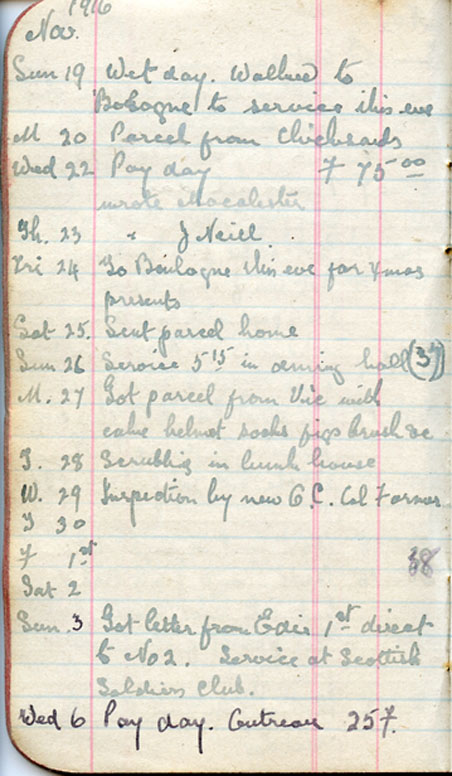 1916
Nov.
Sun 19 Wet day. Walked to
Bologne to service this eve
M 20 Parcel from Chicksands
Wed 22 Pay day F 75 00
wrote Macalester
Th. 23 " J Neill.
Fri 24 To Boulogne this eve for Xmas
presents
Sat 25. Sent parcel home
Sun 26 Service 5 15 in dining hall (37)
M. 27 Got parcel from Vic with
cake helmet socks figs brush &c
T. 28 Scrubbing in bunk house
W. 29 Inspection by new O.C. Col Farmer
T 30
F 1st 38
Sat 2
Sun. 3 Got letter from Edin 1st direct
to No 2. Service at Scottish
Soldiers Club.
Wed 6 Pay day. Outreau 25 F.